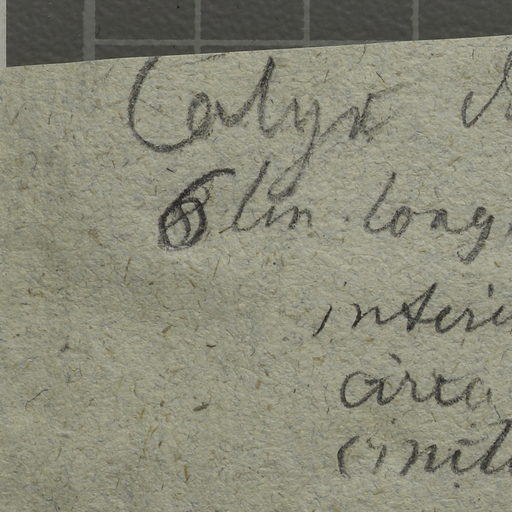 Calyx
6 lin. long
interi
circa